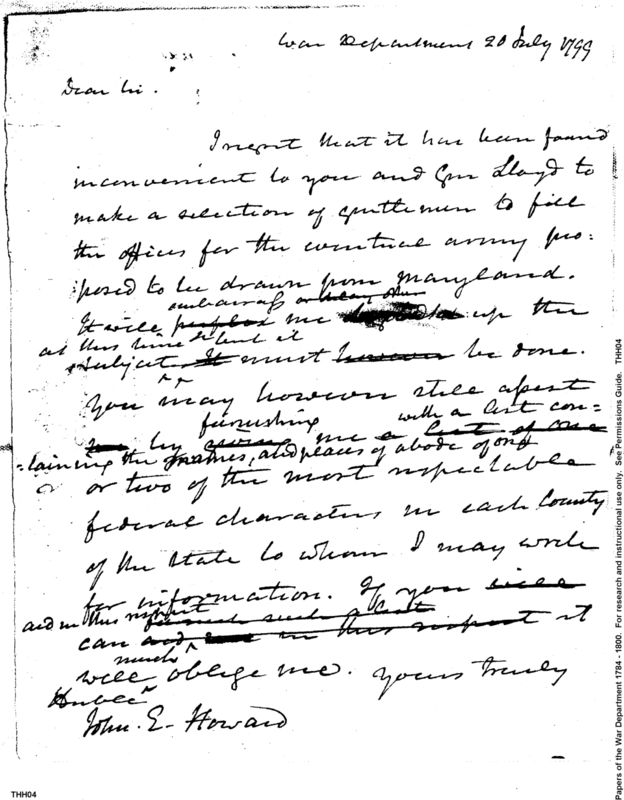 War Department 20 July 1799
Dear Sir.
I regret that it has been found
inconvenient to you and Gen Lloyd to
make a selection of gentlemen to fill
the offices for the eventual army pro:
posed to be drawn from Maryland.
embarrass or
It will perplex me up the
at this time to but it
subject. It must however be done.
You may however still assist
furnishing with a list con=
by giving me a list of one
=taining the names, and places of abode of one
or two of the most respectable
federal characters in each County
of the State to whom I may write
for information. If you will
aid in this respect furnish such a list
can and in this respect it
much
will oblige me. yours truly
Honble
John. E. Howard
Papers of the War Department 1784 - 1800. For research and instructional use only. See Permissions Guide. THH04
THH04